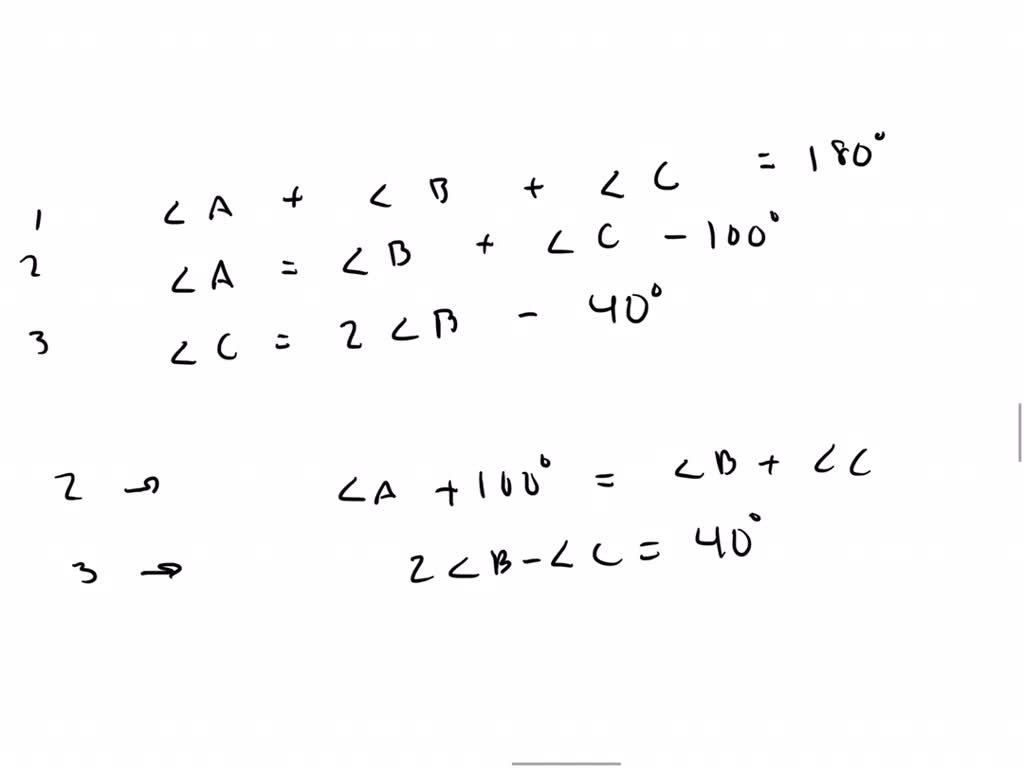 1 ∠A + ∠B + ∠C = 180°
2 ∠A = ∠B + ∠C - 100°
3 ∠C = 2∠B - 40°
2 → ∠A + 100° = ∠B + ∠C
3 → 2∠B - ∠C = 40°